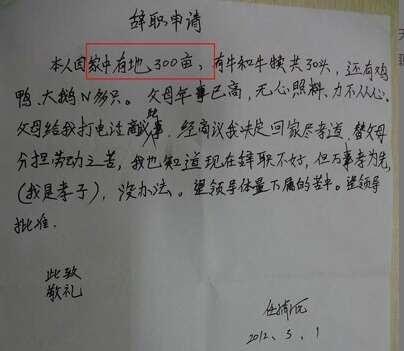 辞职申请
本人因家中有地300亩、有牛和牛犊共30头,还有鸡
鸭、大鹅N多只。父母年事已高,无心照料、力不从心。
父母给我打电话商议事,经商议我决定回家尽孝道,替父母
分担劳动之苦,我也知道现在辞职不好,但万事孝为先
(我是孝子),没办法。望领导体量下属的苦中。望领导
批准.
此致
敬礼
2012、3、1